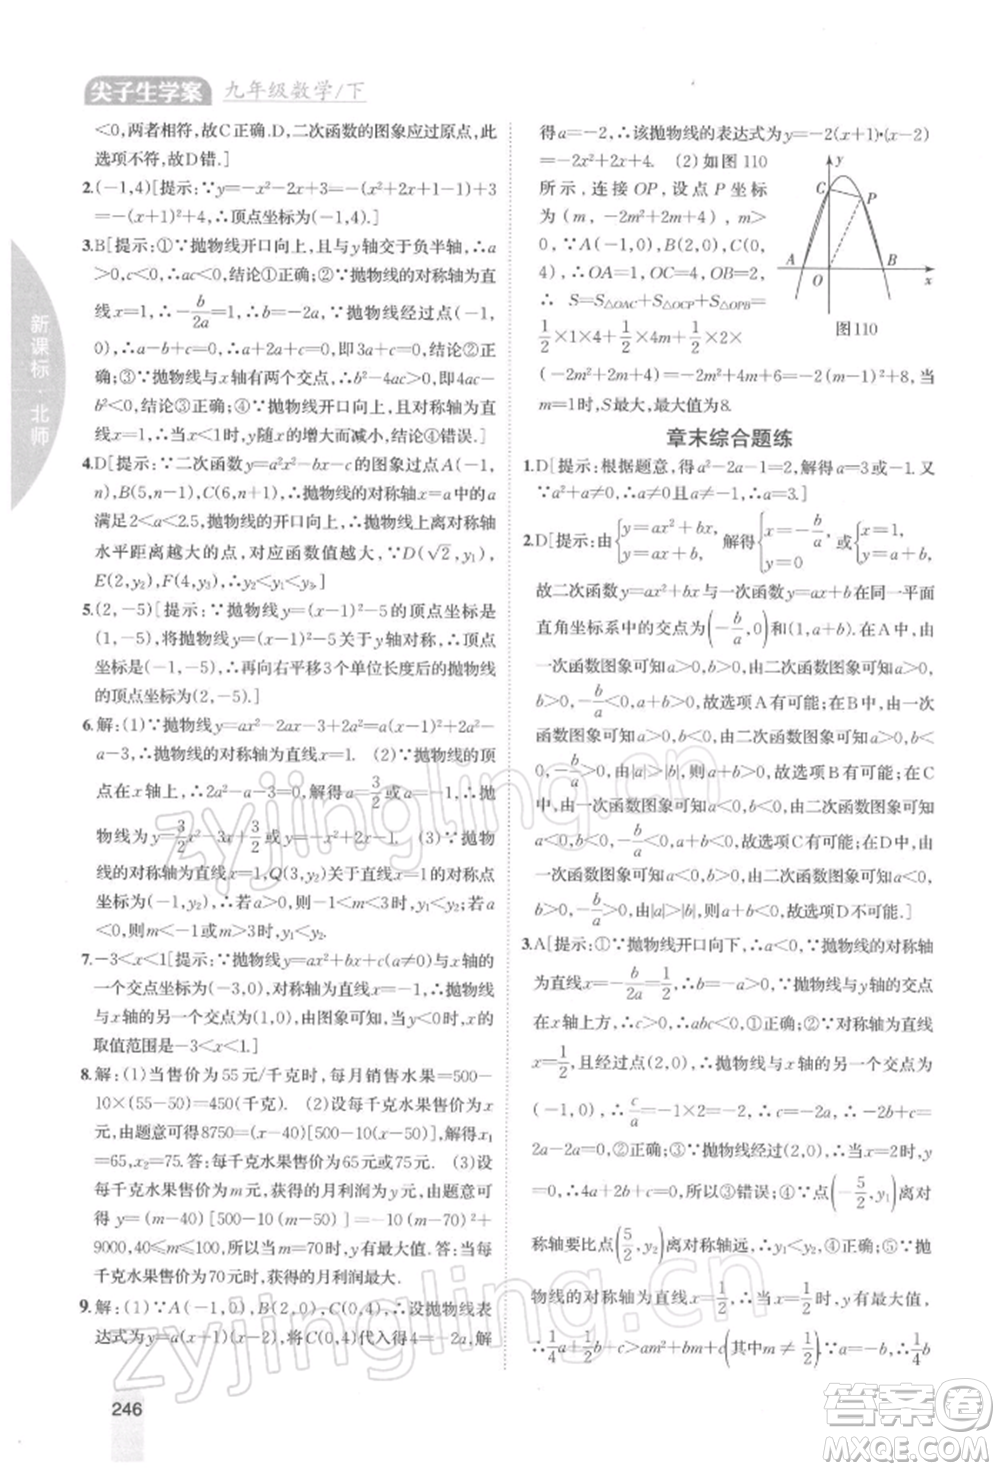 尖子生学案 九年级数学/下
<0,两者相符,故C正确.D,二次函数的图象应过原点,此
选项不符,故D错.]
2.(-1,4)[提示:∵y=-x²-2x+3=-(x²+2x+1-1)+3
=-(x+1)²+4,∴顶点坐标为(-1,4).]
3.B[提示:①∵抛物线开口向上,且与y轴交于负半轴,∴a
>0,c<0,∴ac<0,结论①正确;②∵抛物线的对称轴为直
线x=1,∴-b/2a=1,∴b=-2a,③∵抛物线经过点(-1,
0),∴a-b+c=0,∴a+2a+c=0,即3a+c=0,结论③正
确;②∵抛物线与x轴有两个交点,∴b²-4ac>0,即4ac-
b²<0,结论②正确;④∵抛物线开口向上,且抛物线的对称
轴为直线x=1,∴当x<1时,y随x的增大而减小,结论④错误.]
4.D[提示:∵二次函数y=a²x²-bx-c的图象过点A(-1,
n),B(5,n-1),C(6,n+1),∴抛物线的对称轴直线x=a
满足2<a<2.5,抛物线的开口向上,∴抛物线上离对称轴
水平距离越大的点,对应函数值越大.∵D(√2,y₁),
E(2,y₂),F(4,y₃),∴y₂<y₁<y₃.]
5.(2,-5)[提示:∵抛物线y=(x-1)²-5的顶点坐标是
(1,-5),将抛物线y=(x-1)²-5关于y轴对称,∴顶点
坐标是(-1,-5),∴再向右平移3个单位长度后的抛物线
的顶点坐标为(2,-5).]
6.解:(1)∵抛物线y=ax²-2ax-3+2a²=a(x-1)²+2a²-
a-3,∴抛物线的对称轴为直线x=1. (2)∵抛物线的顶
点在x轴上,∴2a²-a-3=0,解得a=3/2或a=-1,∴抛
物线为y=3/2x²-3x+3/2或y=-x²+2x-1. (3)∵抛物
线的对称轴为直线x=1,Q(3,y₂)关于直线x=1的对称点
的坐标为(-1,y₂),∴若a>0,则当-1<m<3时,y₁<
y₂;若a<0,则当m<-1或m>3时,y₁<y₂.
7.-3<x<1[提示:∵抛物线的对称轴为直线x=-1,与x轴
的一个交点坐标为(-3,0),根据对称性可知,抛物线
与x轴的另一个交点为(1,0),观察图象可知,当y>0时,x的
取值范围是-3<x<1.]
8.解:(1)当售价为55元/千克时,每月销售水果=500-
10×(55-50)=450(千克). (2)设每千克水果售价为x
元,由题意可得8750=(x-40)[500-10(x-50)],解得x₁
=65,x₂=75.答:每千克水果售价为65元或75元. (3)设
每千克水果售价为m元,获得的月利润为y元,由题意可
得y=(m-40)[500-10(m-50)]=-10(m-70)²+
9000,∴当m=70时,y有最大值.答:当每
千克水果售价为70元时,获得的月利润最大.
9.解:(1)∵A(-1,0),B(2,0),C(0,4),∴设抛物线表
达式为y=a(x+1)(x-2),将C(0,4)代入得4=-2a,解
246
得a=-2,∴该抛物线的表达式为y=-2(x+1)•(x-2)
=-2x²+2x+4. (2)如图110
所示,连接OP,设点P坐标
为(m,-2m²+2m+4),m>
0,∵A(-1,0),B(2,0),C(0,
4),∴OA=1,OC=4,OB=2,
∴S=S△OAC+S△OCP+S△OPB=
1/2×1×4+1/2×4m+1/2×2×
(-2m²+2m+4)=-2m²+4m+6=-2(m-1)²+8,当
m=1时,S最大,最大值为8.
y
C
P
A
O
B
x
图110
章末综合题练
1.D[提示:根据题意,得a²-2a-1=2,解得a=3或-1.又
∵a²+a≠0,∴a≠0且a≠-1,∴a=3.]
2.D[提示:由{y=ax²+bx, y=ax+b, 解得{x=-b/a, y=0 或{x=1, y=a+b,
故二次函数y=ax²+bx与一次函数y=ax+b在同一平面
直角坐标系中的交点为(-b/a,0)和(1,a+b).在A中,由
一次函数图象可知a>0,b>0,由二次函数图象可知a>
0,b>0,-b/a<0,a+b>0,故选项A有可能;在B中,由一
次函数图象可知a>0,b<0,由二次函数图象可知a>0,b<
0,-b/a>0,由|a|>|b|,得a+b>0,故选项B有可能;在C
中,由一次函数图象可知a<0,b<0,由二次函数图象可知
a<0,b<0,-b/a<0,a+b<0,故选项C有可能;在D中,由
一次函数图象可知a<0,b>0,由二次函数图象可知a<0,b>
0,-b/a>0,由|a|>|b|,得a+b<0,故选项D不可能.]
3.A[提示:①∵抛物线开口向下,∴a<0.∵抛物线的对称轴
为直线x=-b/2a=1/2,∴b=-a>0,∵抛物线与y轴的交点
在x轴上方,∴c>0,∴abc<0;②∵抛物线的对称轴为直线
x=1/2,且经过点(2,0),∴抛物线与x轴的另一个交点为
(-1,0),∴c/a=-1×2=-2,∴c=-2a,∴-2b+c=2a-
2a=0,∴②正确;③∵抛物线经过(2,0),∴当x=2时,y=
0,∴4a+2b+c=0,所以③错误;④∵点(-5/2,y₁)离对
称轴要比点(5/2,y₂)离对称轴远,∴y₁<y₂,∴④正确;⑤∵抛
物线的对称轴为直线x=1/2,∴当x=1/2时,y有最大值,
∴1/4a+1/2b+c>am²+bm+c(其中m≠1/2).∵a=-b,∴1/4
新课标·北师
zyjingling.cn
zyjingling.cn
答案圈
MXQE.COM